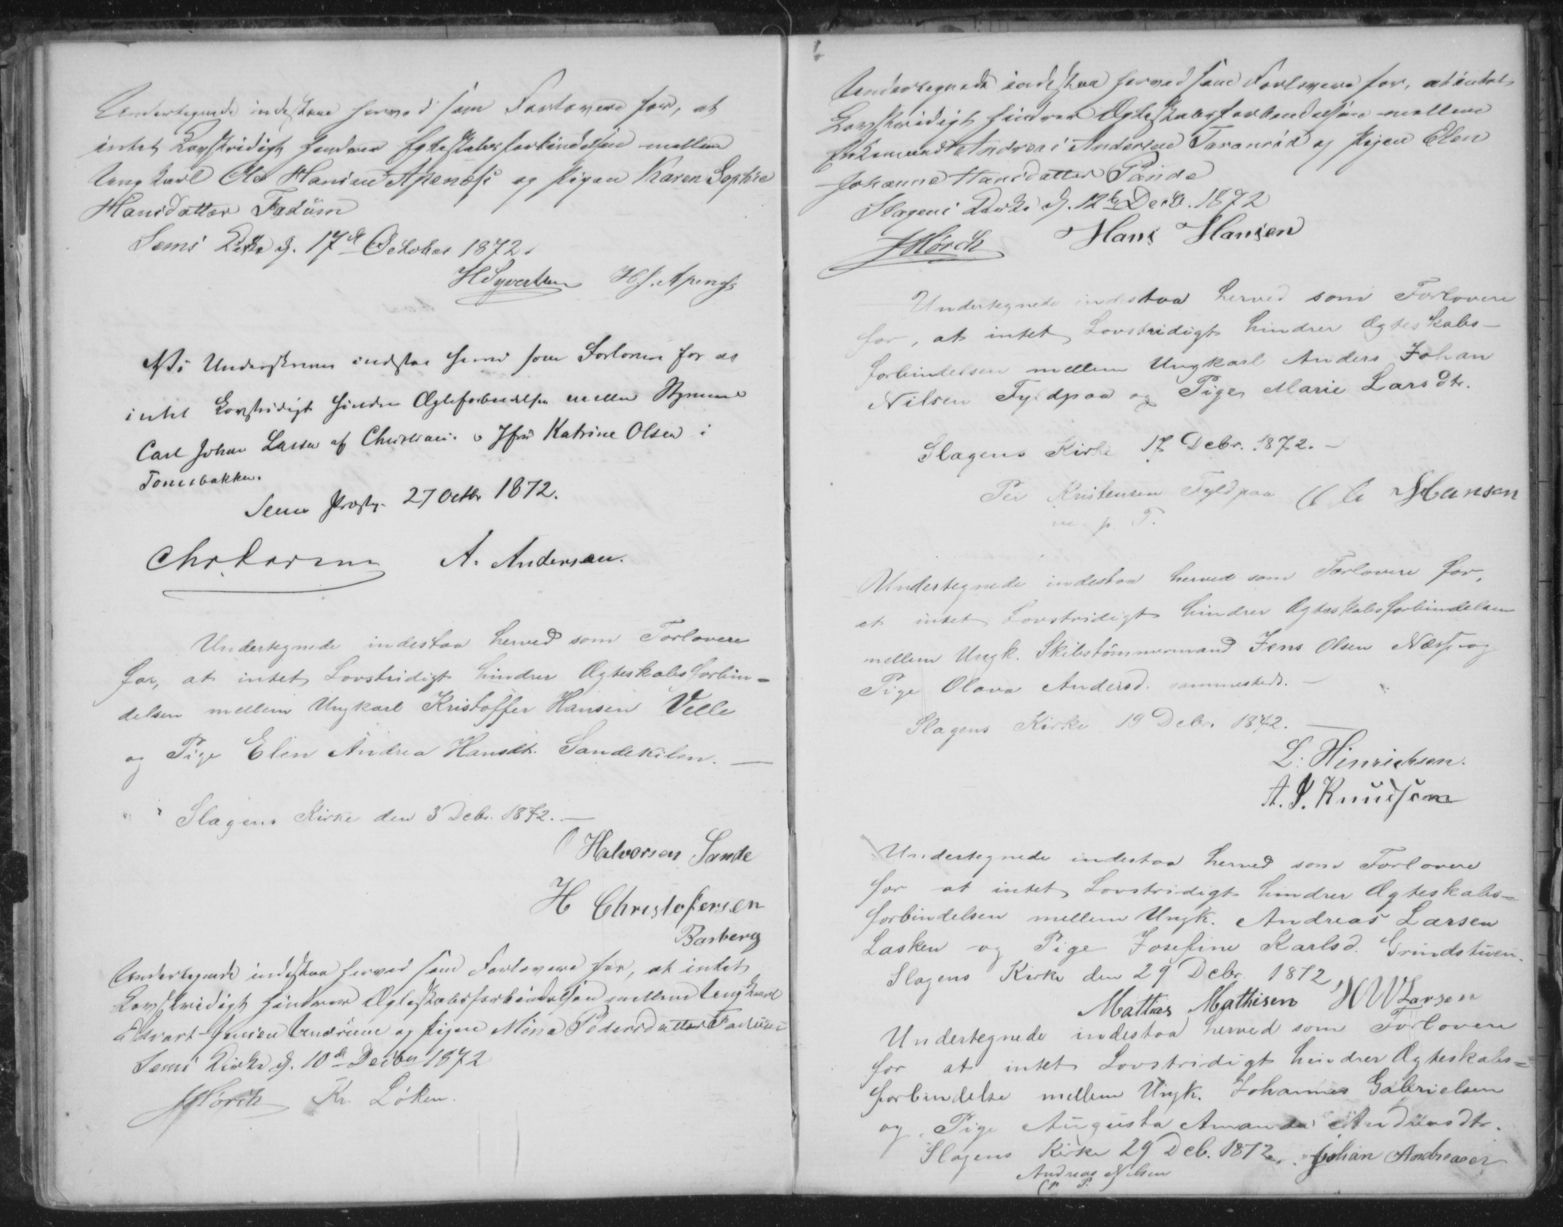 Undertegnede indestaae herved som Forlovere for, at
intet Lovstridigt hindrer Egteskabsforbindelsen mellem
Ungkarl Ole Hansen Apenæs og Pigen Karen Sophie
Hansdatter Fadüm
Sems Kirke d. 17de October 1872.
H Syvertsen H J. Apenæs
Vi Underskrevne indestaa herved som Forlovere for at
intet Lovstridigt hindrer Ægteforbindelse mellem Styrmand
Carl Johan Larsen af Christiani. o Jfr Katrine Olsen i
Tonsbakken.
Sems Præstg. 27 Octbr 1872.
Chr. Larsen A. Andersen.
Undertegnede indestaa herved som Forlovere
for, at intet Lovstridigt hindrer Ægteskabsforbin-
delsen mellem Ungkarl Kristoffer Hansen Velle
og Pige Elen Andrea Hansdt. Sandekilen. —
Slagens Kirke den 3 Debr. 1872. —
O Halvorsen Sande
H Christofersen
Basberg
Undertegnede indestaa herved som Forlovere for, at intet
Lovstridigt hindrer Ægteskabsforbindelsen mellem Ungkarl
Edvart Jensen og Pigen Pedersdatter Fadum
Sems Kirke d. 10de Decbr 1872
Hörch Kr. Løken.
Undertegnede indestaa herved som Forlovere for, at intet
Lovstridigt hindrer Ægteskabsforbindelsen mellem
Enkemand Andreas Andersen og Pigen Elen
Johanne Hansdatter Sande
Slagens Kirke d. 12te Decb. 1872
Hörch Hans Hansen
Undertegnede indestaa herved som Forlovere
for, at intet Lovstridigt hindrer Ægteskabs-
forbindelsen mellem Ungkarl Anders Johan
Nilsen Fyldpaa og Pige Marie Larsdtr.
Slagens Kirke 17 Debr. 1872. —
Per Kristensen Fyldpaa Ole Hansen
m. p. P.
Undertegnede indestaa herved som Forlovere for,
at intet Lovstridigt hindrer Ægteskabsforbindelsen
mellem Ungk. Skibstömmermand Jens Olsen Næs og
Pige Olava Andersd. sammesteds. —
Slagens Kirke 19 Debr. 1872. —
L. Hinrichsen.
A. J. Knudsen
Undertegnede indestaa herved som Forlovere
for at intet Lovstridigt hindrer Ægteskabs-
forbindelsen mellem Ungk. Andreas Larsen
Lasken og Pige Josefine Karlsd. Grindstuen.
Slagens Kirke den 29 Debr. 1872
Mathias Mathisen H W Larsen
Undertegnede indestaa herved som Forlovere
for at intet Lovstridigt hindrer Ægteskabs-
forbindelse mellem Ungk. Johannes Gabrielsen
og Pige Augusta Amanda Andreasdtr.
Slagens Kirke 29 Deb. 1872. Johan Andreasen
Andreas Nilsen